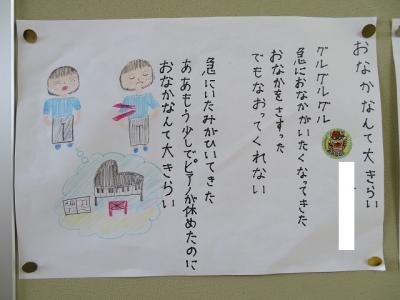 おなかなんて大きらい
グルグルグル
急におなかがいたくなってきた
おなかをさすった
でもなおってくれない
急にいたみがひいてきた
ああもう少しでピアノが休めたのに
おなかなんて大きらい